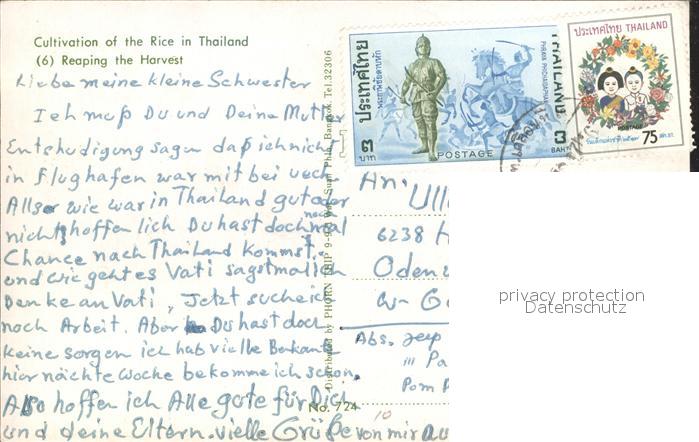 Cultivation of the Rice in Thailand
(6) Reaping the Harvest
Liebe meine kleine Schwester
Ich muß Du und Deine Mutter
Entschudigung sagen daß ich nicht
in Flughafen war mit bei uech.
Allso wie war in Thailand gut oder
nichts hoffen lich Du hast doch noch mal
Chance nach Thailand kommst.
und wie geht es Vati sagst mal ich
Denke an Vati, Jetzt suche ich
noch Arbeit. Aber Du hast doch
keine sorgen ich hab vielle Bekante
hier nächte woche bekomme ich schon.
Also hoffen ich Alle gute für Dich
und deine Eltern. vielle Grüße von mir au
No. 724
10
Distributed by PHORN THIP 9-9 Wat Suan Phlu, Bangkok. Tel. 32306
ประเทศไทย
THAILAND
พระยาพิชัยดาบหัก
PHRAYA PHICHAI DAPHAK
๓
บาท
POSTAGE
3
BAHT
ประเทศไทย THAILAND
POSTAGE
75
An.
Ull
6238 H
Oden
W- G
Abs. Jeep
111 Pa
Pom P
privacy protection
Datenschutz